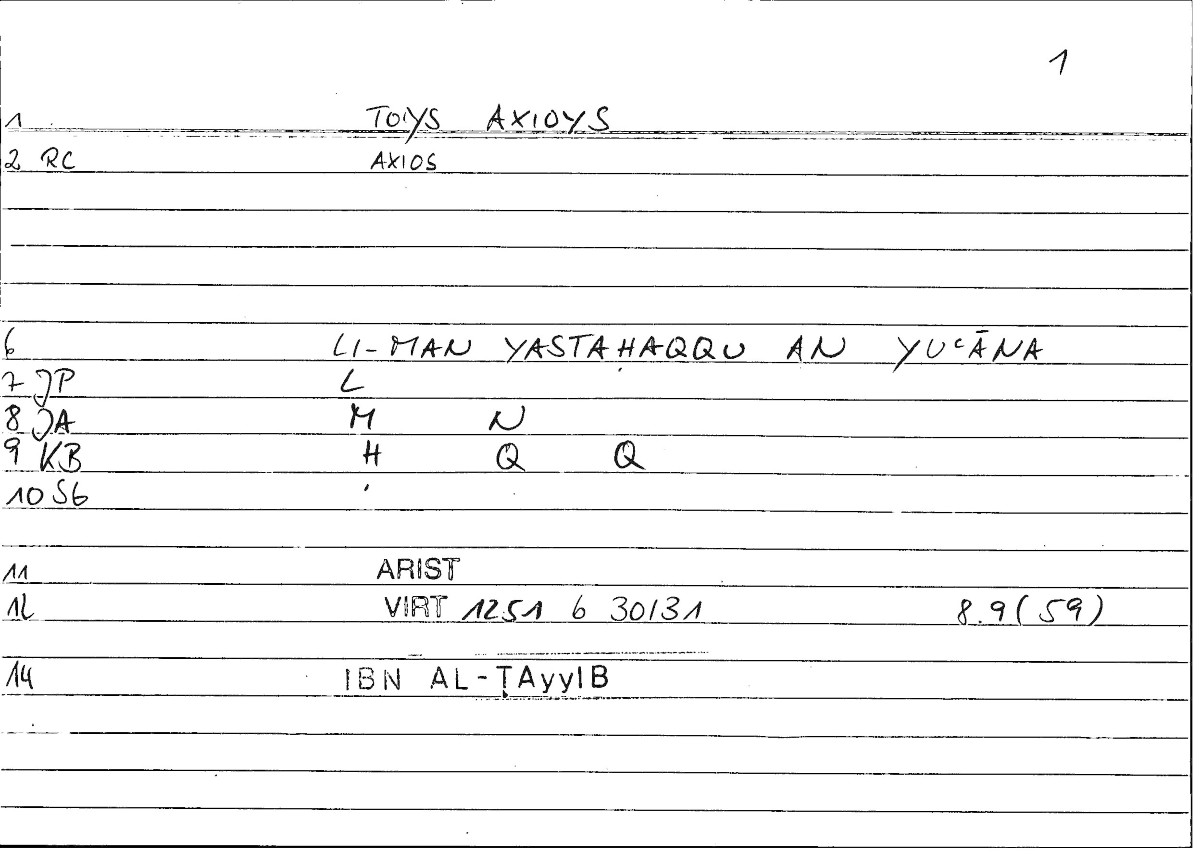 1
1 TOYS AXIOYS
2 RC AXIOS
6 LI-MAN YASTAḤAQQU AN YUᶜĀNA
7 JP L
8 JA M N
9 KB H Q Q
10 SG '
11 ARIST
12 VIRT 1251 6 30/31 8.9 (59)
14 IBN AL-ṬAyyIB